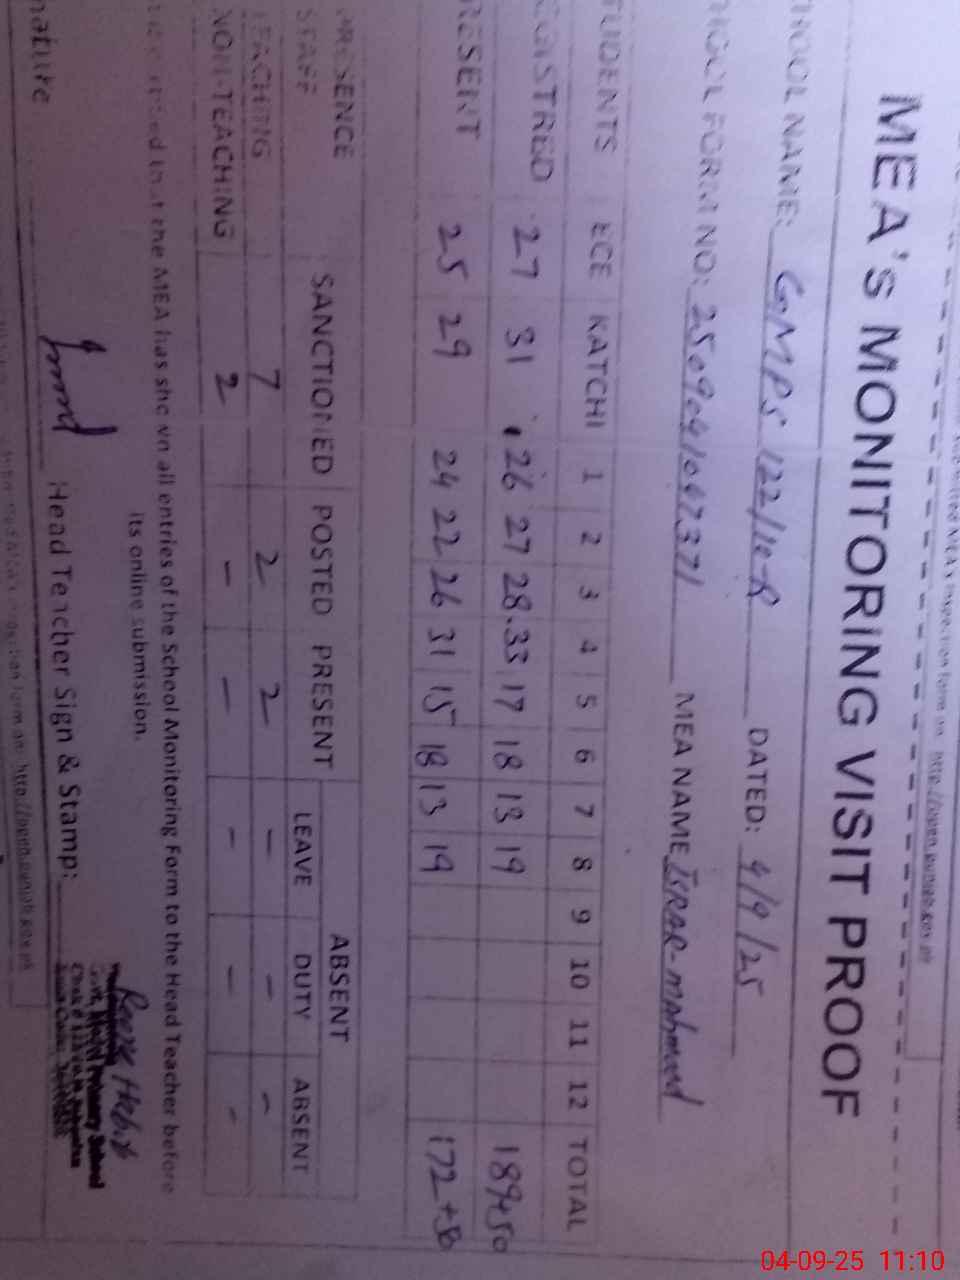 MEA'S MONITORING VISIT PROOF
HOOL NAME: GMPS 122/10-R DATED: 4/9/25
HOOL FORM NO: MEA NAME Israr-mahmood
TUDENTS ECE KATCHI 1 2 3 4 5 6 7 8 9 10 11 12 TOTAL
EGISTRED 27 31 26 27 28 33 17 18 13 19 189+50
RESENT 25 29 24 22 26 31 15 18 13 19 172+50
PRESENCE ABSENT
STAFF SANCTIONED POSTED PRESENT LEAVE DUTY ABSENT
TEACHING 7 2 2 - - -
NON-TEACHING 2 - - - - -
that the MEA has shown all entries of the School Monitoring Form to the Head Teacher before
its online submission.
nature Head Teacher Sign & Stamp:
http://open.punjab.gov.pk
04-09-25 11:10